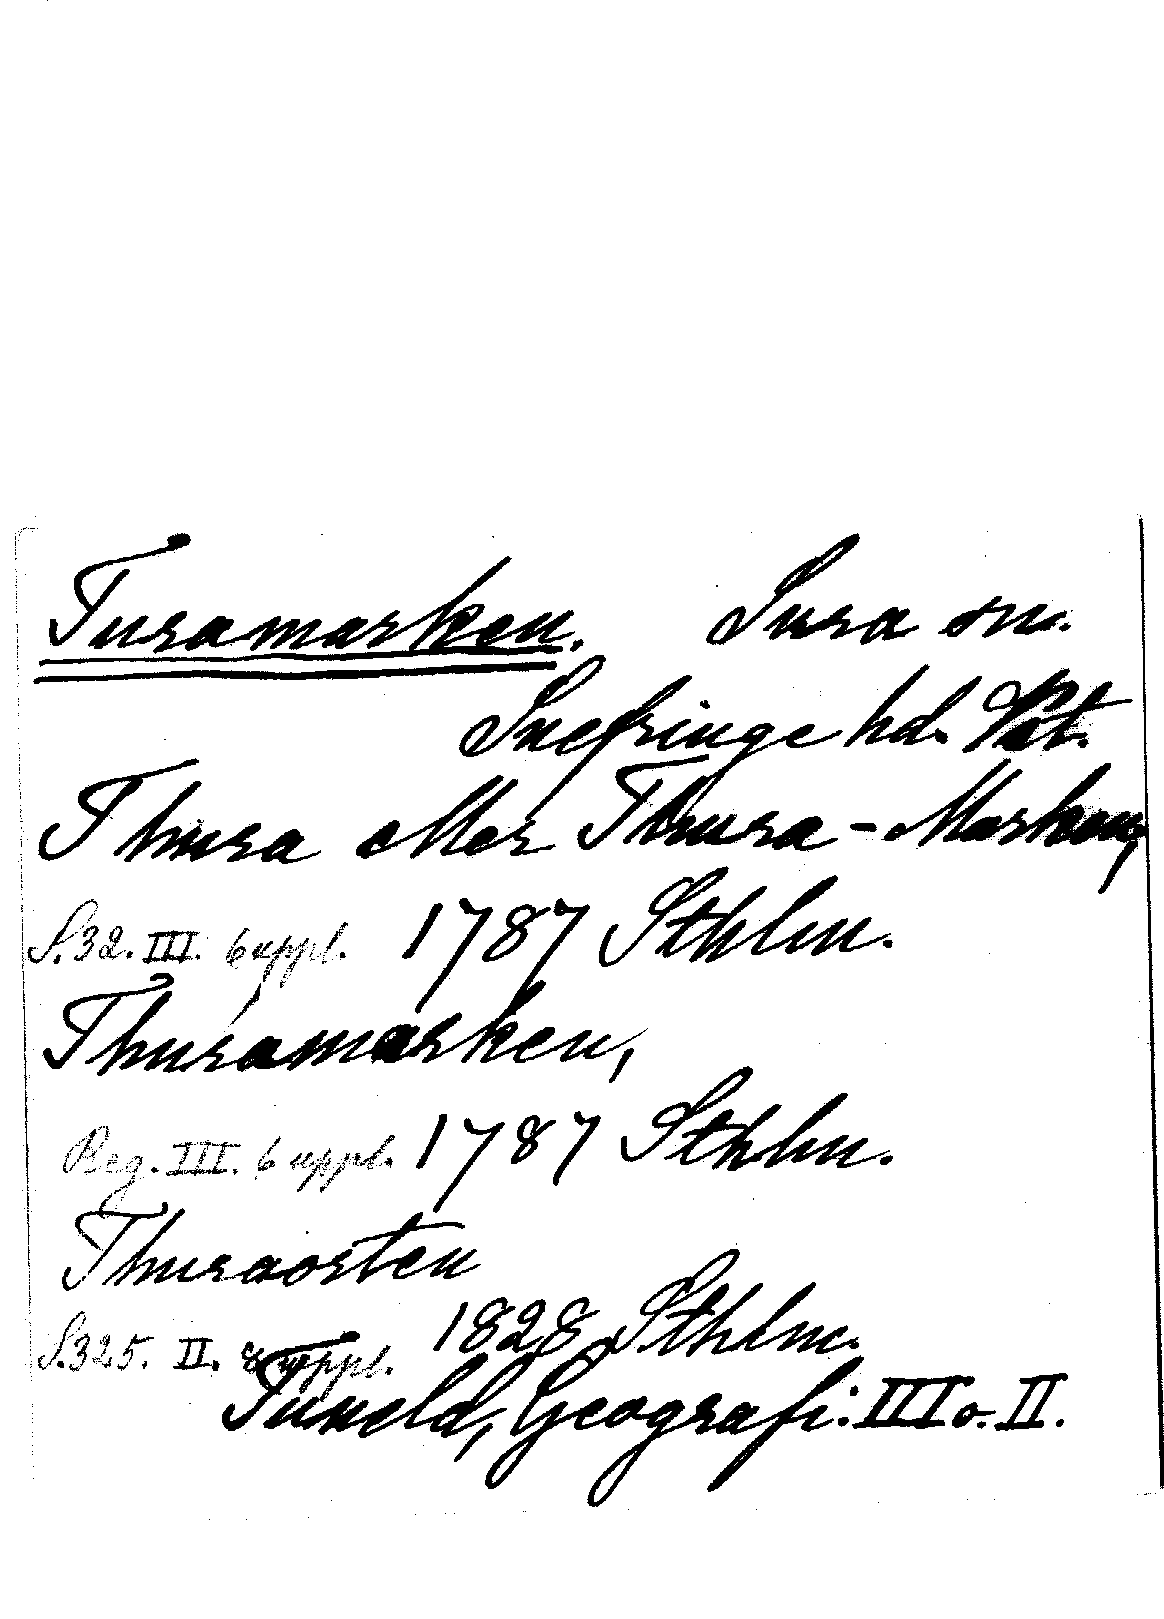 Turamarken. Sura sn.
Snefringe hd. Vstl.
Thura eller Thura-Marken,
S.32. III. 6 uppl. 1787 Sthlm.
Thuramarken,
Reg. III. 6 uppl. 1787 Sthlm.
Thuraorten
S.325. II. 8 uppl. 1828 Sthlm.
Tuneld, Geografi. III o. II.